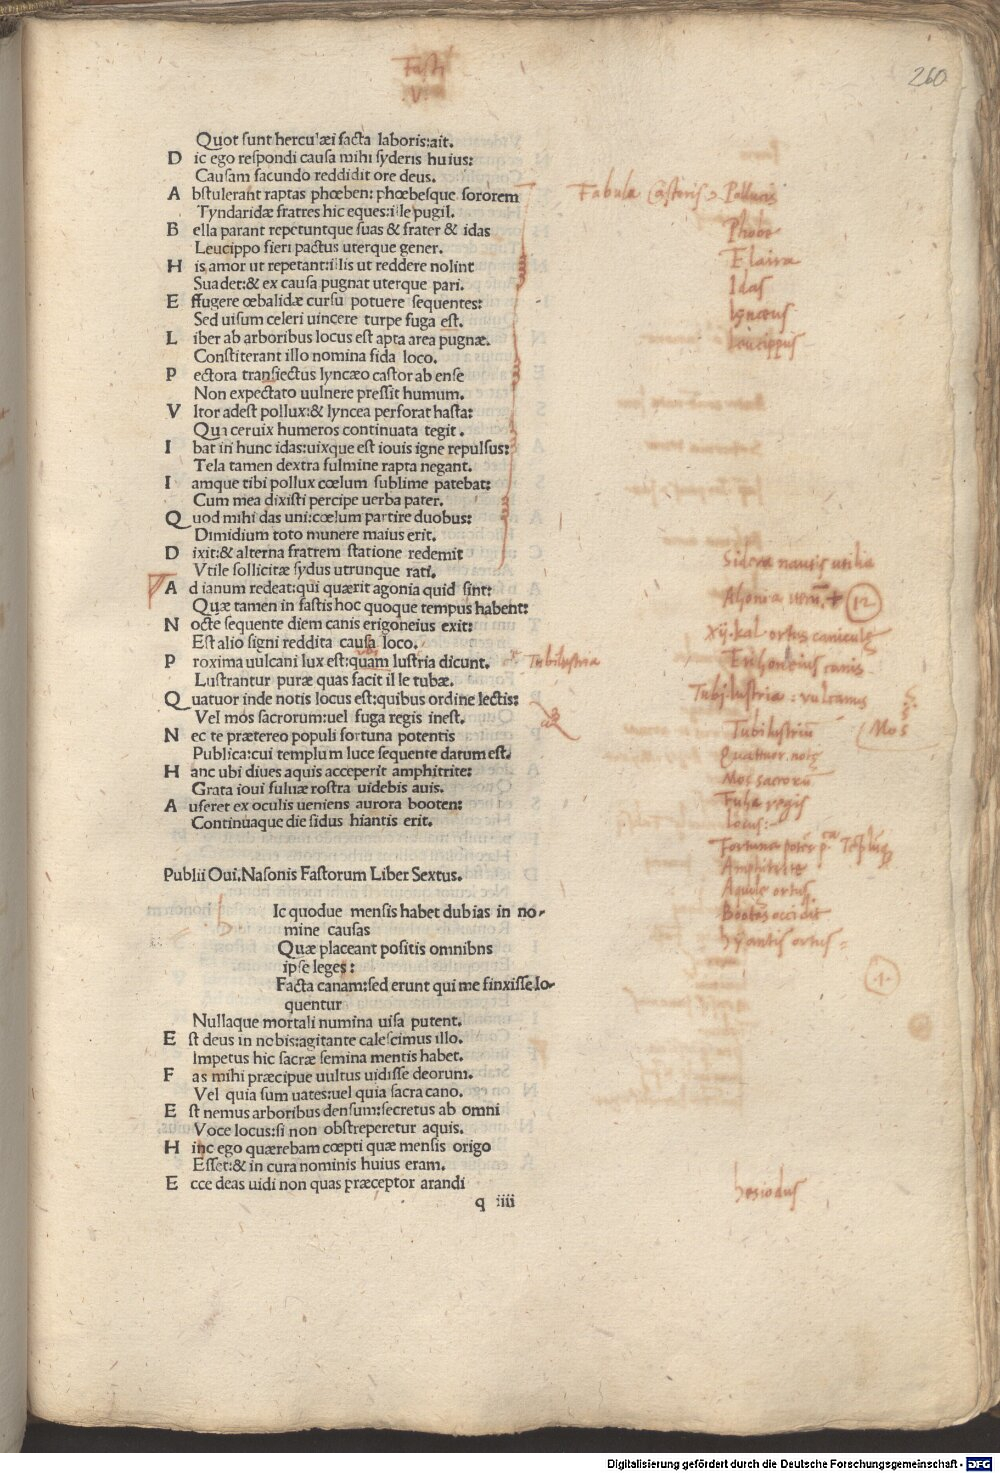 Fasti
.V.
260
Quot sunt herculæi facta laboris:ait.
D ic ego respondi causa mihi syderis huius:
Causam facundo reddidit ore deus.
A bstulerant raptas phœben: phœbesque sororem
Tyndaridæ fratres hic eques:ille pugil.
B ella parant repetuntque suas & frater & idas
Leucippo fieri pactus uterque gener.
H is amor ut repetant:illis ut reddere nolint
Suadet:& ex causa pugnat uterque pari.
E ffugere œbalidæ cursu potuere sequentes:
Sed uisum celeri uincere turpe fuga est.
L iber ab arboribus locus est apta area pugnæ.
Constiterant illo nomina fida loco.
P ectora transiectus lyncæo castor ab ense
Non expectato uulnere pressit humum.
V ltor adest pollux:& lyncea perforat hasta:
Qua ceruix humeros continuata tegit.
I bat in hunc idas:uixque est iouis igne repulsus:
Tela tamen dextra fulmine rapta negant.
I amque tibi pollux cœlum sublime patebat:
Cum mea dixisti percipe uerba pater.
Q uod mihi das uni:cœlum partire duobus:
Dimidium toto munere maius erit.
D ixit:& alterna fratrem statione redemit
Vtile sollicitæ sydus utrunque rati.
A d ianum redeat:qui quærit agonia quid sint:
Quæ tamen in fastis hoc quoque tempus habent:
N octe sequente diem canis erigoneius exit:
Est alio signi reddita causa loco.
P roxima uulcani lux est:quam lustria dicunt.
Lustrantur puræ quas facit ille tubæ.
Q uatuor inde notis locus est:quibus ordine lectis:
Vel mos sacrorum:uel fuga regis inest.
N ec te prætereo populi fortuna potentis
Publica:cui templum luce sequente datum est.
H anc ubi diues aquis acceperit amphitrite:
Grata ioui fuluæ rostra uidebis auis.
A uferet ex oculis ueniens aurora booten:
Continuaque die sidus hiantis erit.
Publii Oui.Nasonis Fastorum Liber Sextus.
Ic quodue mensis habet dubias in no-
mine causas
Quæ placeant positis omnibns
ipse leges:
Facta canam:sed erunt qui me finxisse lo-
quentur
Nullaque mortali numina uisa putent.
E st deus in nobis:agitante calescimus illo.
Impetus hic sacræ semina mentis habet.
F as mihi præcipue uultus uidisse deorum.
Vel quia sum uates:uel quia sacra cano.
E st nemus arboribus densum:secretus ab omni
Voce locus:si non obstreperetur aquis.
H inc ego quærebam cœpti quæ mensis origo
Esset:& in cura nominis huius eram.
E cce deas uidi non quas præceptor arandi
q iiii
Fabula Castoris Pollucis
Phobe
Elaira
Idas
lynceus
leucippus
Sidera nautis utilia
12
xij.kal ortus caniculę
Erihoneius canis
Tubilustria
Tubilustria : vulcanus
Tubilustriū
Mos
Quattuor notę
Mos sacrorū
Fuga regis
locus:
Amphitrite
Aquilę ortus
Bootes occidit
hyantis ortus
.1.
hesiodus
Digitalisierung gefördert durch die Deutsche Forschungsgemeinschaft - DFG